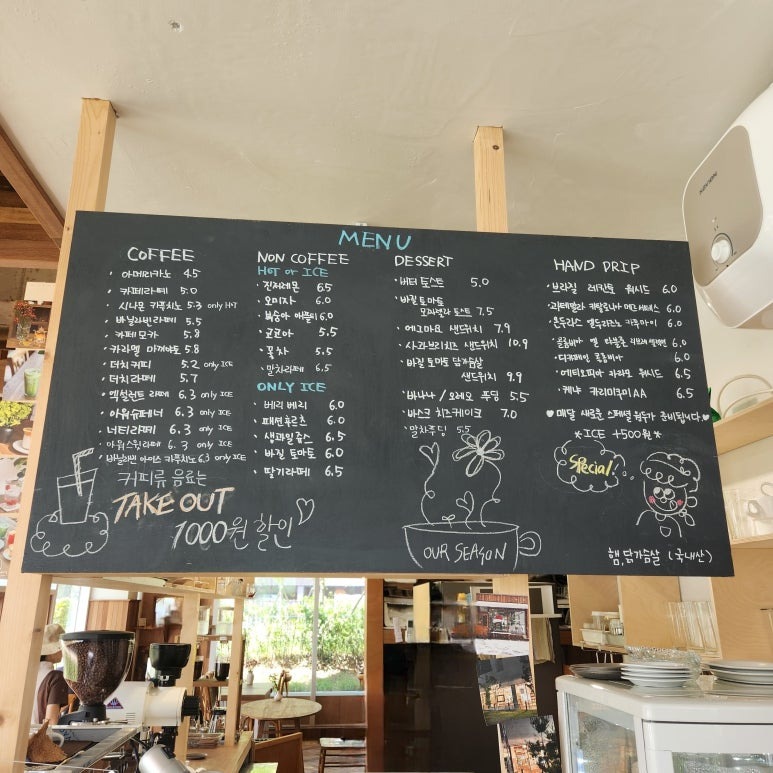 MENU
COFFEE
· 아메리카노 4.5
· 카페라떼 5.0
· 시나몬 카푸치노 5.3 only HOT
· 바닐라빈라떼 5.5
· 카페모카 5.8
· 카라멜 마끼아또 5.8
· 더치커피 5.2 only ICE
· 더치라떼 5.7
· 엑설런트 라떼 6.3 only ICE
· 아워슈페너 6.3 only ICE
· 너티라떼 6.3 only ICE
· 아워스윗라떼 6.3 only ICE
· 바닐라빈 아이스 카푸치노 6.3 only ICE
커피류 음료는
TAKE OUT
1000원 할인
NON COFFEE
HOT or ICE
· 진저레몬 6.5
· 오미자 6.0
· 복숭아 아이스티 6.0
· 코코아 5.5
· 꽃차 5.5
· 말차라떼 6.5
ONLY ICE
· 베리베리 6.0
· 패션후르츠 6.0
· 생과일쥬스 6.5
· 바질 토마토 6.0
· 딸기라떼 6.5
DESSERT
· 버터 토스트 5.0
· 바질토마토
모짜렐라 토스트 7.5
· 에그마요 샌드위치 7.9
· 사과브리치즈 샌드위치 10.9
· 바질 토마토 닭가슴살
샌드위치 9.9
· 바나나 / 오레오 푸딩 5.5
· 바스크 치즈케이크 7.0
· 말차푸딩 5.5
OUR SEASON
HAND DRIP
· 브라질 레칸토 워시드 6.0
· 과테말라 6.0
· 온두라스 6.0
· 콜롬비아 엘 6.0
· 디카페인 콜롬비아 6.0
· 에티오피아 워시드 6.5
· 케냐 AA 6.5
매달 새로운 스페셜 원두가 준비됩니다
*ICE +500원*
Special!
햄,닭가슴살 (국내산)